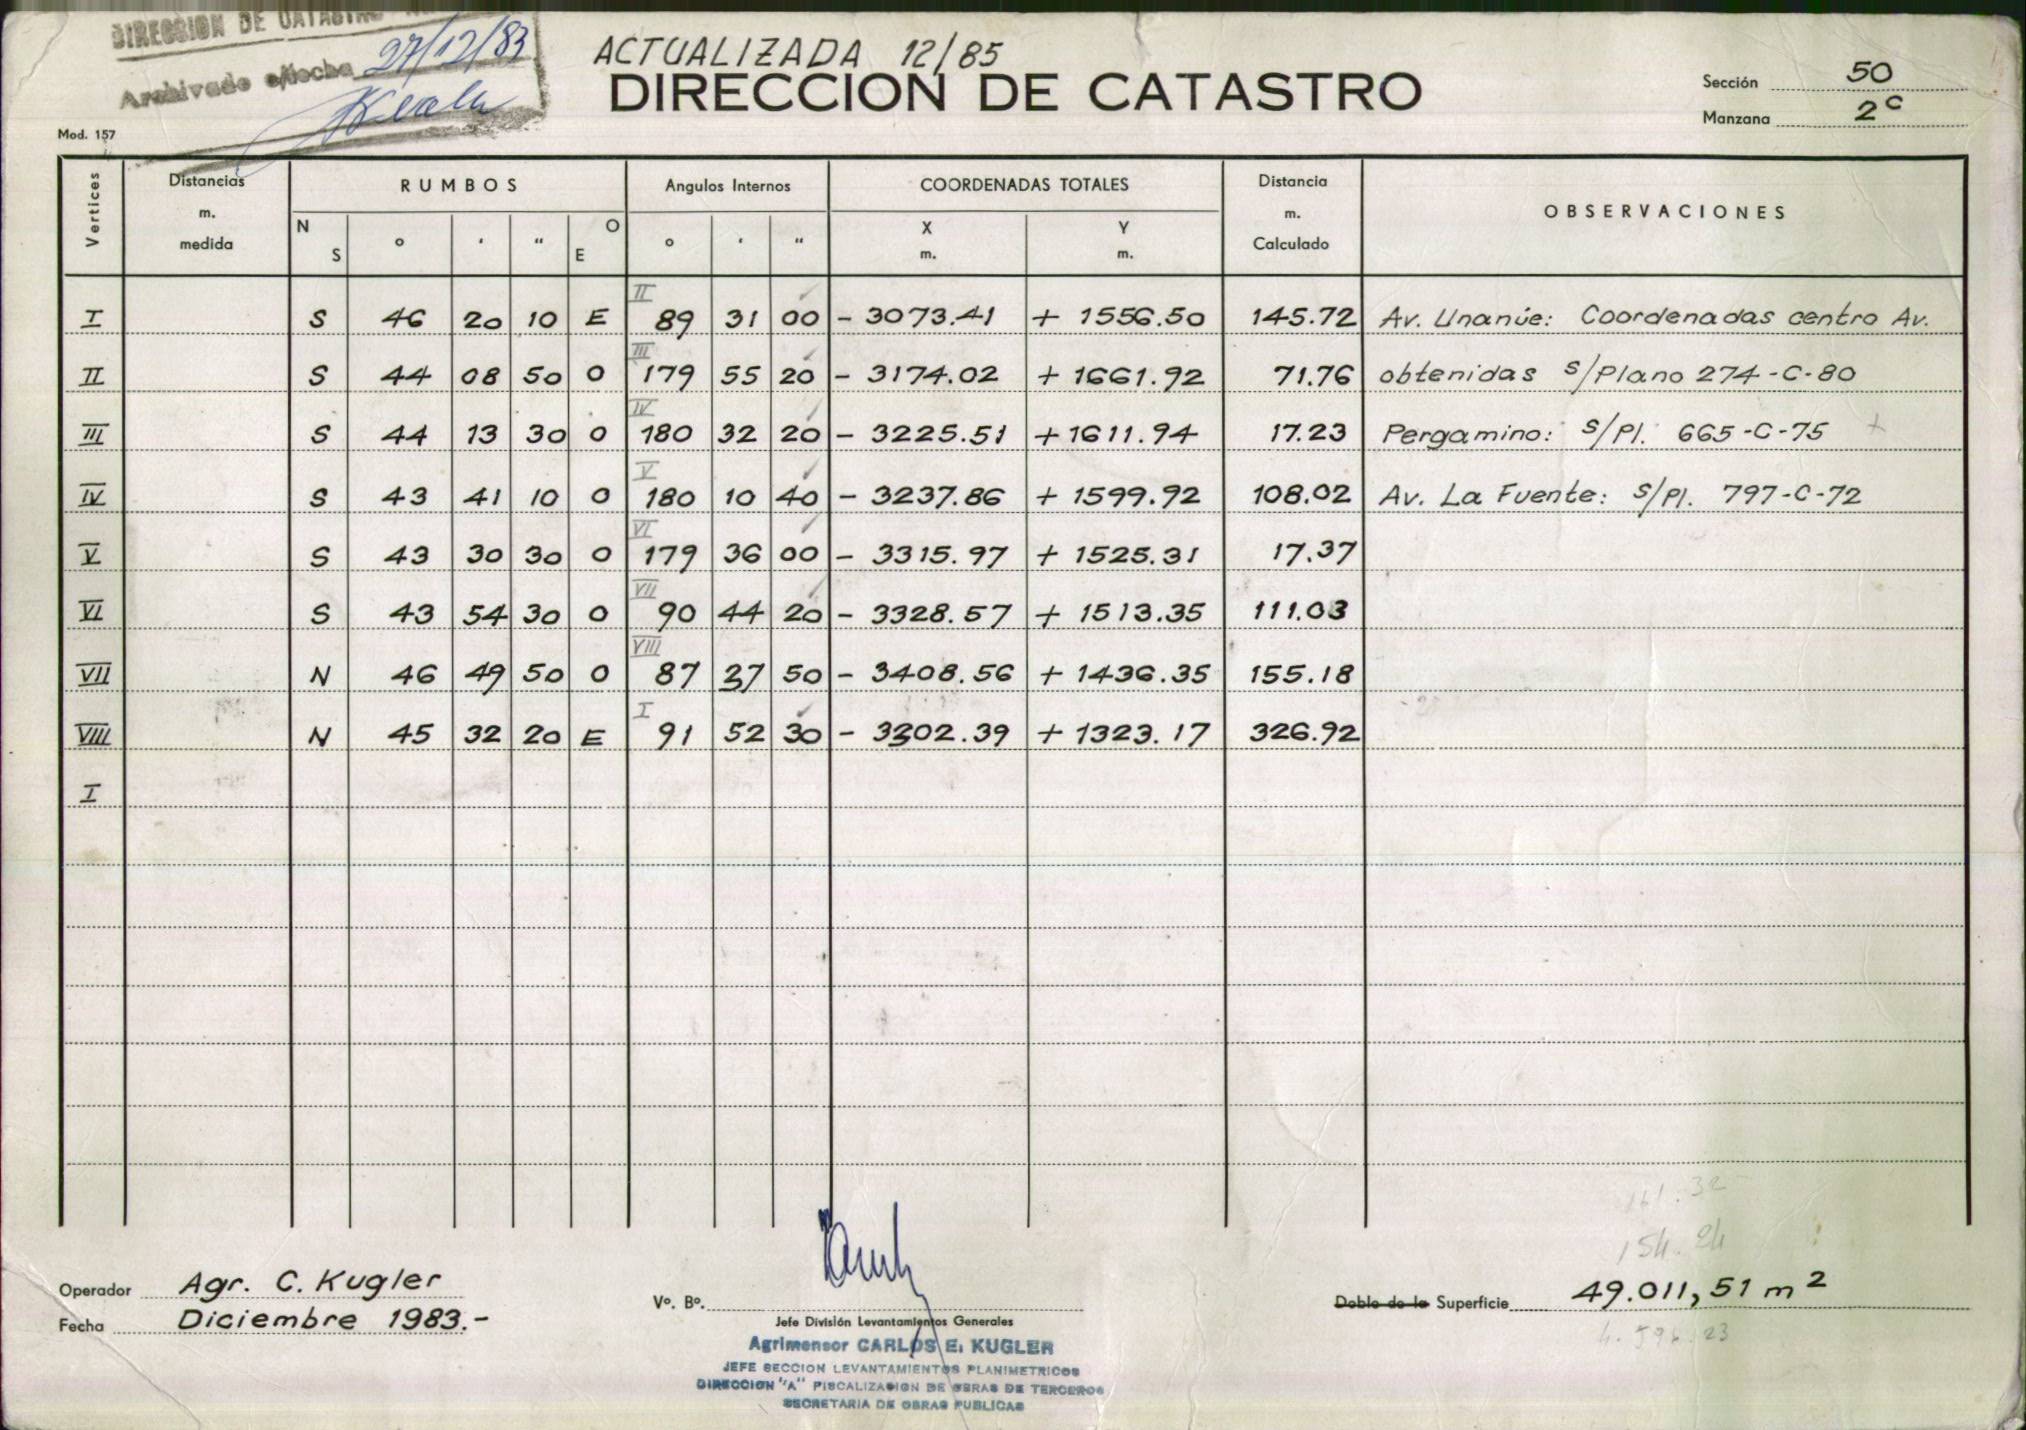 DIRECCION DE CATASTRO
Archivado c/fecha 27/12/83
ACTUALIZADA 12/85
DIRECCION DE CATASTRO
Sección 50
Manzana 2c
Mod. 157
Vertices
Distancias m. medida
RUMBOS
Angulos Internos
COORDENADAS TOTALES
Distancia m. Calculado
OBSERVACIONES
N S ° ' " O E ° ' " X m. Y m.
II
I S 46 20 10 E 89 31 00 - 3073.41 + 1556.50 145.72 Av. Unanúe: Coordenadas centro Av.
III
II S 44 08 50 O 179 55 20 - 3174.02 + 1661.92 71.76 obtenidas s/Plano 274-C-80
IV
III S 44 13 30 O 180 32 20 - 3225.51 + 1611.94 17.23 Pergamino: s/Pl. 665-C-75 +
V
IV S 43 41 10 O 180 10 40 - 3237.86 + 1599.92 108.02 Av. La Fuente: s/Pl. 797-C-72
VI
V S 43 30 30 O 179 36 00 - 3315.97 + 1525.31 17.37
VII
VI S 43 54 30 O 90 44 20 - 3328.57 + 1513.35 111.03
VIII
VII N 46 49 50 O 87 37 50 - 3408.56 + 1436.35 155.18
I
VIII N 45 32 20 E 91 52 30 - 3302.39 + 1323.17 326.92
I
161.32
154.24
Operador Agr. C. Kugler
Fecha Diciembre 1983.-
Vº. Bº.
Jefe División Levantamientos Generales
Agrimensor CARLOS E. KUGLER
JEFE SECCION LEVANTAMIENTOS PLANIMETRICOS
DIRECCION "A" FISCALIZACION DE OBRAS DE TERCEROS
SECRETARIA DE OBRAS PUBLICAS
Doble de la Superficie 49.011,51 m2